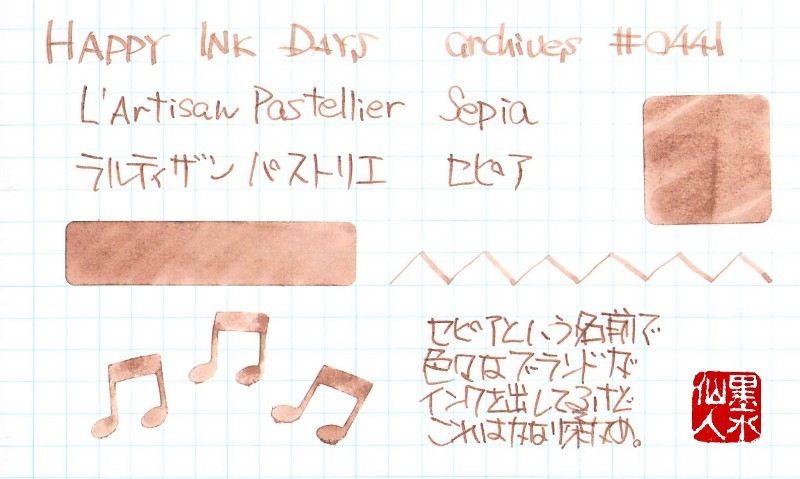 HAPPY INK DAYS archives #0441
L'Artisan Pastellier Sepia
ラルティザン パストリエ セピア
セピアという名前で
色々なブランドが
インクを出してるけど
これはかなり赤ため。
墨水
仙人